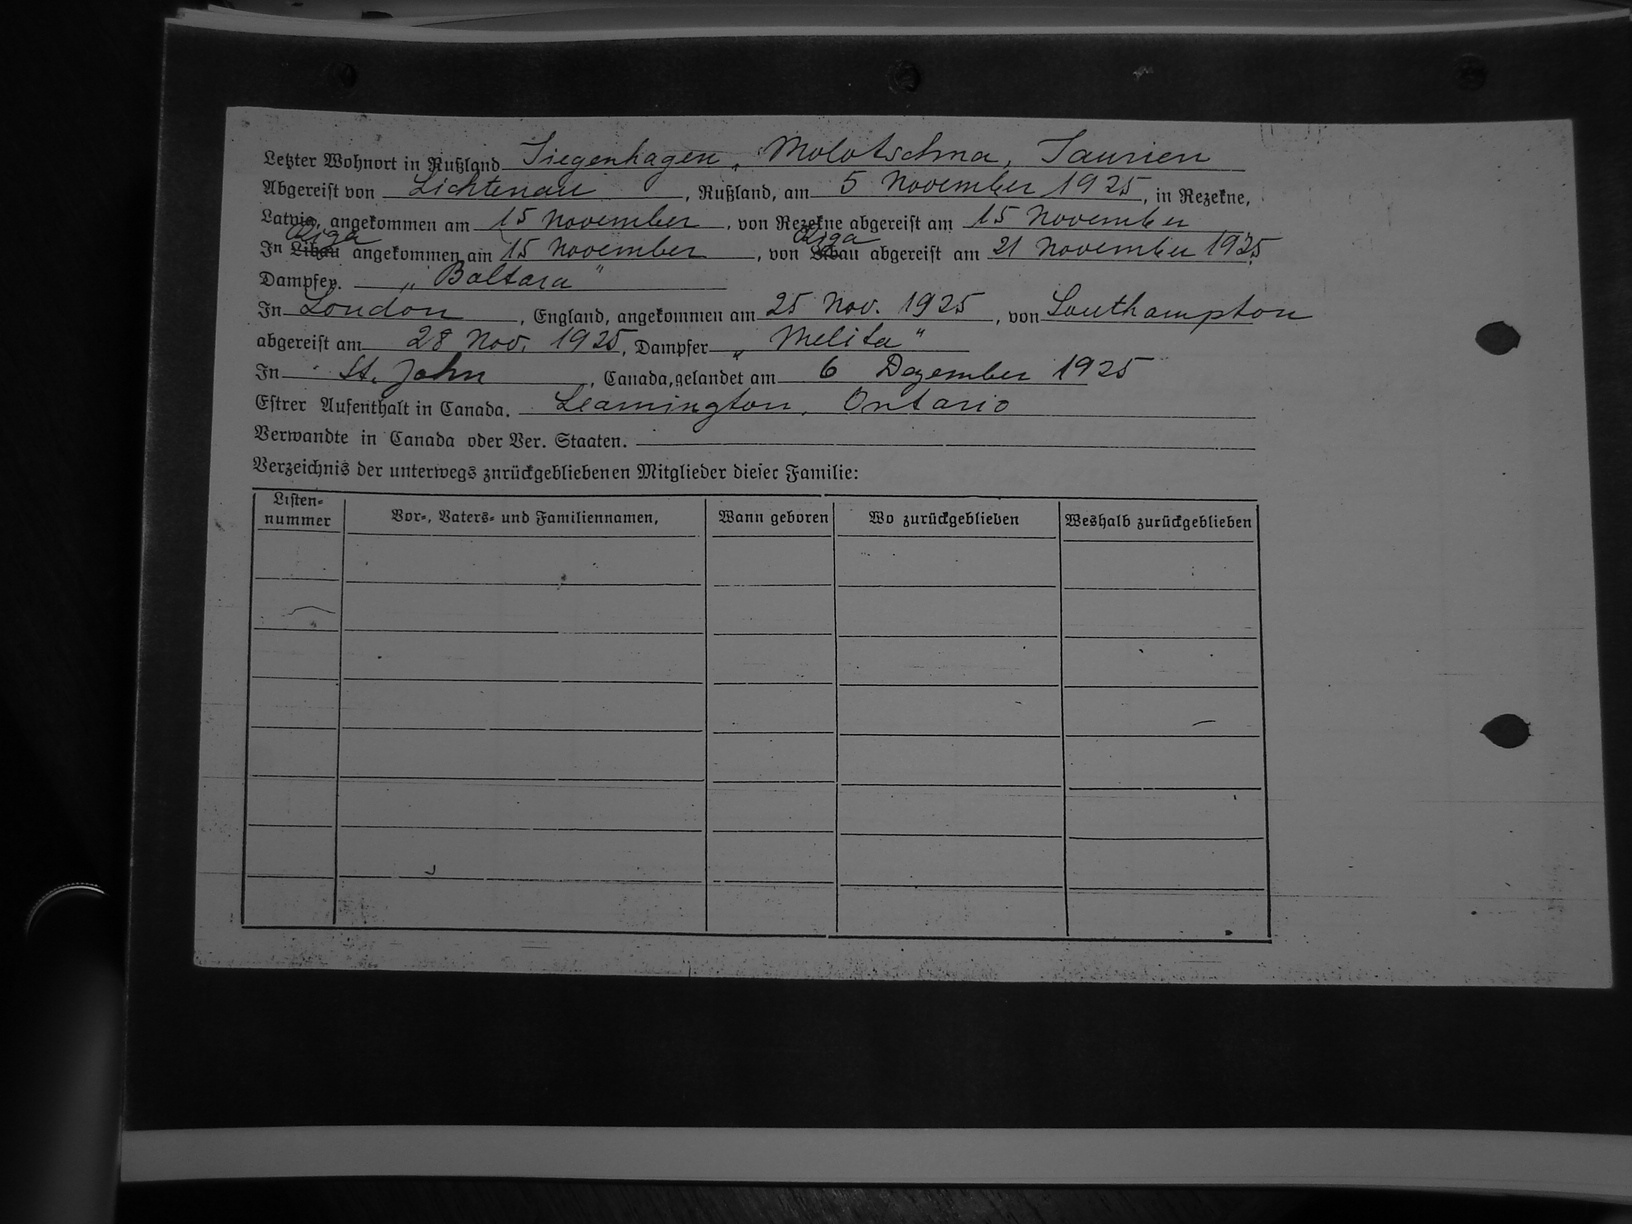 Letzter Wohnort in Rußland Tiegenhagen, Molotschna, Taurien
Abgereist von Lichtenau, Rußland, am 5 November 1925, in Rezekne,
Latvia, angekommen am 15 November, von Rezekne abgereist am 15 November
Riga Riga
In Libau angekommen am 15 November, von Libau abgereist am 21 November 1925
Dampfer. „Baltara“
In London, England, angekommen am 25 Nov. 1925, von Southampton
abgereist am 28 Nov. 1925, Dampfer „Melita“
In St. John, Canada, gelandet am 6 Dezember 1925
Estrer Aufenthalt in Canada. Leamington, Ontario
Verwandte in Canada oder Ver. Staaten.
Verzeichnis der unterwegs znrückgebliebenen Mitglieder dieser Familie:
Listen-
nummer Vor-, Vaters- und Familiennamen, Wann geboren Wo zurückgeblieben Weshalb zurückgeblieben